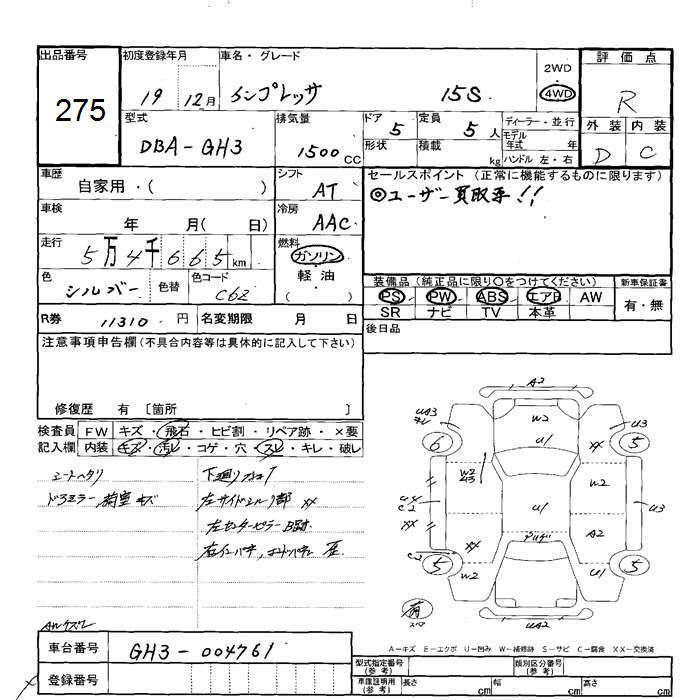 出品番号 初度登録年月 車名・グレード 2WD 評価点
275 19 12月 インプレッサ 15S 4WD R
型式 排気量 ドア 定員 ディーラー・並行 外装 内装
DBA-GH3 1500CC 5 5人 モデル年式 年 D C
形状 積載 kg ハンドル 左・右
車歴 シフト セールスポイント (正常に機能するものに限ります)
自家用・( ) AT ◎ユーザー買取車!!
車検 冷房
年 月( 日) AAC
走行 燃料
5万4千665km ガソリン
色 色コード 軽油
シルバー 色替 C62 ( )
装備品 (純正品に限り〇をつけてください) 新車保証書
PS PW ABS エアB AW 有・無
SR ナビ TV 本革
R券 11310円 名変期限 月 日 後日品
注意事項申告欄(不具合内容等は具体的に記入して下さい)
修復歴 有 〔箇所 〕
検査員 FW キズ・飛石・ヒビ割・リペア跡・×要
記入欄 内装 キズ・汚レ・コゲ・穴・スレ・キレ・破レ
シートヘタリ
ドアミラー 荷室 キズ
下廻り
左サイドシル 部 XX
左センターピラー
A2
UA3 キレ W2 U3
6 U1 XX 5
W2 U3 W2
U4 C2 U1 U3
XX A2
C2 XX
5 W2 U1 5
有 スペア
UA2
AWケズレ
A-キズ E-エクボ U-凹み W-補修跡 S-サビ C-腐食 XX-交換済
車台番号 GH3-004761
登録番号
型式指定番号(参考) 類別区分番号(参考)
車庫証明用(参考) 長さ cm 幅 cm 高さ cm